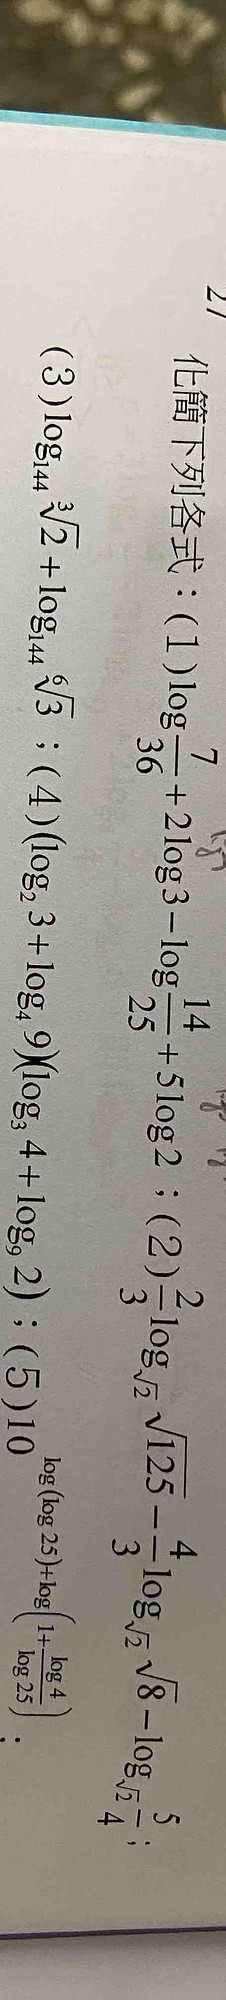 27
化簡下列各式：(1) log 7/36 + 2log3 − log 14/25 + 5log2；(2) 2/3 log_{√2} √125 − 4/3 log_{√2} √8 − log_{√2} 5/4；
(3) log_{144} ∛2 + log_{144} ⁶√3；(4) (log_2 3 + log_4 9)(log_3 4 + log_9 2)；(5) 10^{log(log 25)+log(1+ log 4/log 25)}；